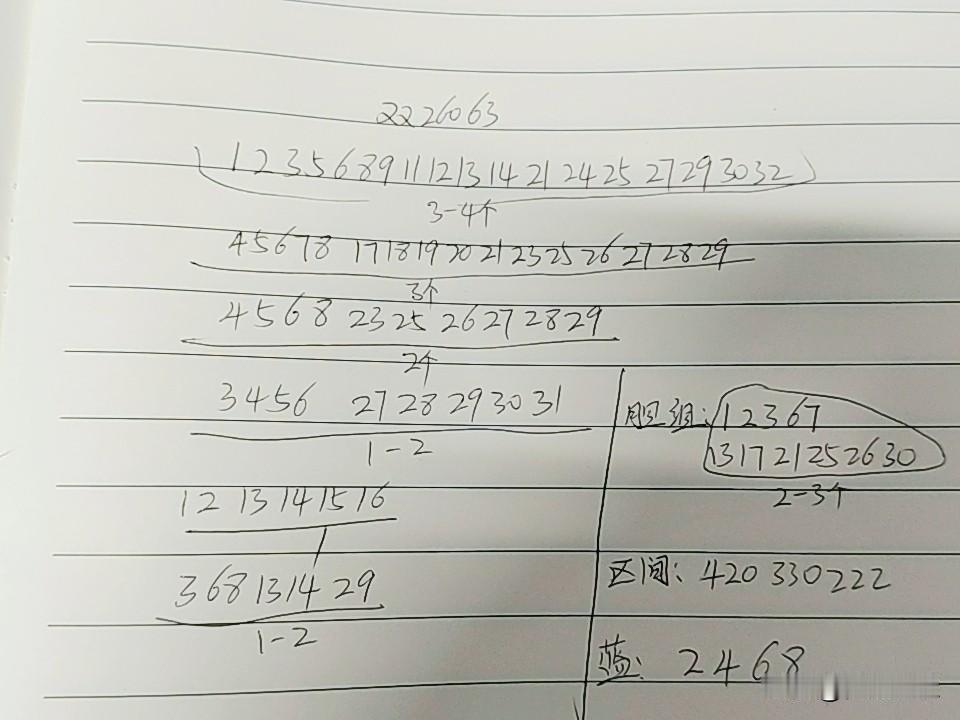 2226063
1 2 3 5 6 8 9 11 12 13 14 21 24 25 27 29 30 32
3-4个
4 5 6 7 8 17 18 19 20 21 23 25 26 27 28 29
3个
4 5 6 8 23 25 26 27 28 29
2个
3 4 5 6 27 28 29 30 31
1-2
12 13 14 15 16
1
3 6 8 13 14 29
1-2
胆组: 1 2 3 6 7
13 17 21 25 26 30
2-3个
区间: 420 330 222
蓝: 2 4 6 8